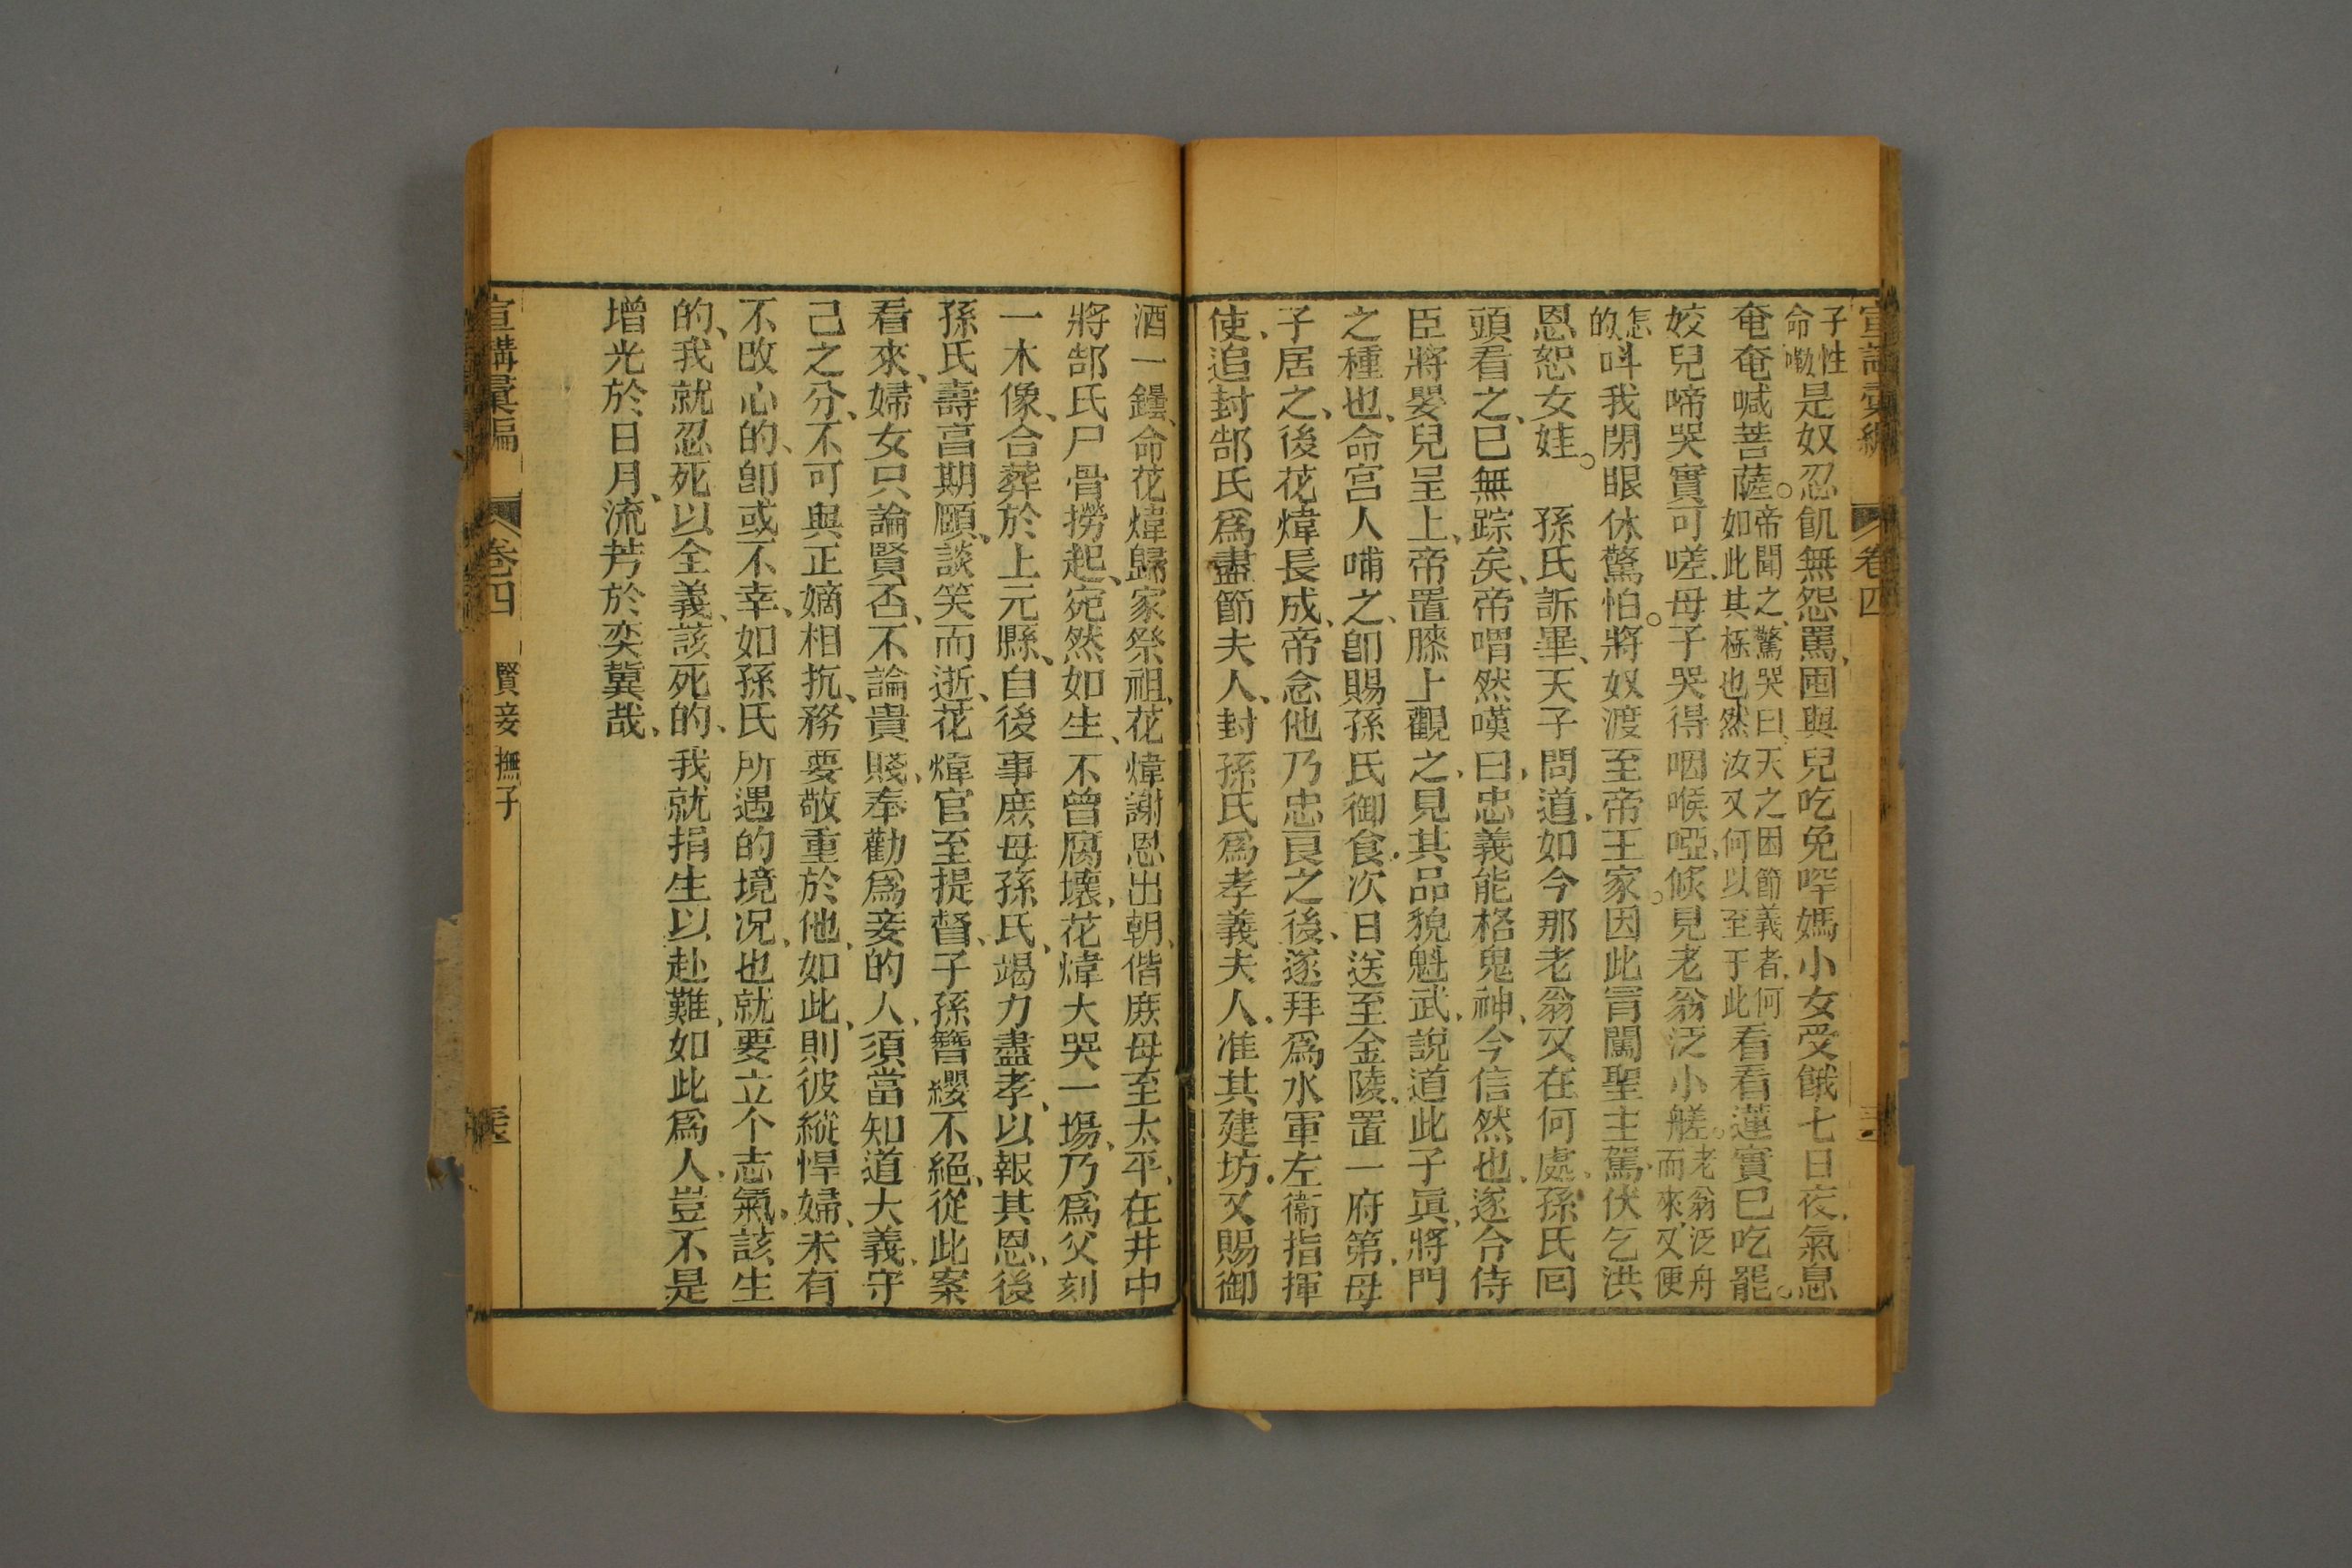 宣講彙編 卷四
子性命嘞是奴忍飢無怨罵、囤與兒吃免啰媽小女受餓七日夜、氣息
奄奄喊菩薩。帝聞之、驚哭曰、天之困節義者、何如此其極也、然汝又何以至于此看看蓮實已吃罷。
姣兒啼哭實可嗟、母子哭得咽喉啞、倏見老翁泛小艖。老翁泛舟而來、又便
怎的呌我閉眼休驚怕。將奴渡至帝王家。因此冐闖聖主駕、伏乞洪
恩恕女娃。 孫氏訴畢、天子問道、如今那老翁又在何處、孫氏囘
頭看之、已無踪矣、帝喟然嘆曰、忠義能格鬼神、今信然也、遂令侍
臣將嬰兒呈上、帝置膝上觀之、見其品貌魁武、說道此子眞、將門
之種也、命宮人哺之、卽賜孫氏御食、次日送至金陵、置一府第、母
子居之、後花煒長成、帝念他乃忠良之後、遂拜爲水軍左衞指揮
使、追封郜氏爲盡節夫人、封孫氏爲孝義夫人、准其建坊、又賜御
酒一鐔、命花煒歸家祭祖、花煒謝恩出朝、偕庶母至太平、在井中
將郜氏尸骨撈起、宛然如生、不曾腐壞、花煒大哭一塲、乃爲父刻
一木像、合葬於上元縣、自後事庶母孫氏、竭力盡孝、以報其恩、後
孫氏壽高期頤、談笑而逝、花煒官至提督、子孫簪纓不絕、從此案
看來、婦女只論賢否、不論貴賤、奉勸爲妾的人、須當知道大義、守
己之分、不可與正嫡相抗、務要敬重於他、如此、則彼縱悍婦、未有
不改心的、卽或不幸、如孫氏所遇的境况、也就要立个志氣、該生
的、我就忍死以全義、該死的、我就捐生以赴難、如此爲人、豈不是
增光於日月、流芳於奕冀哉、
宣講彙編 卷四 賢妾撫子